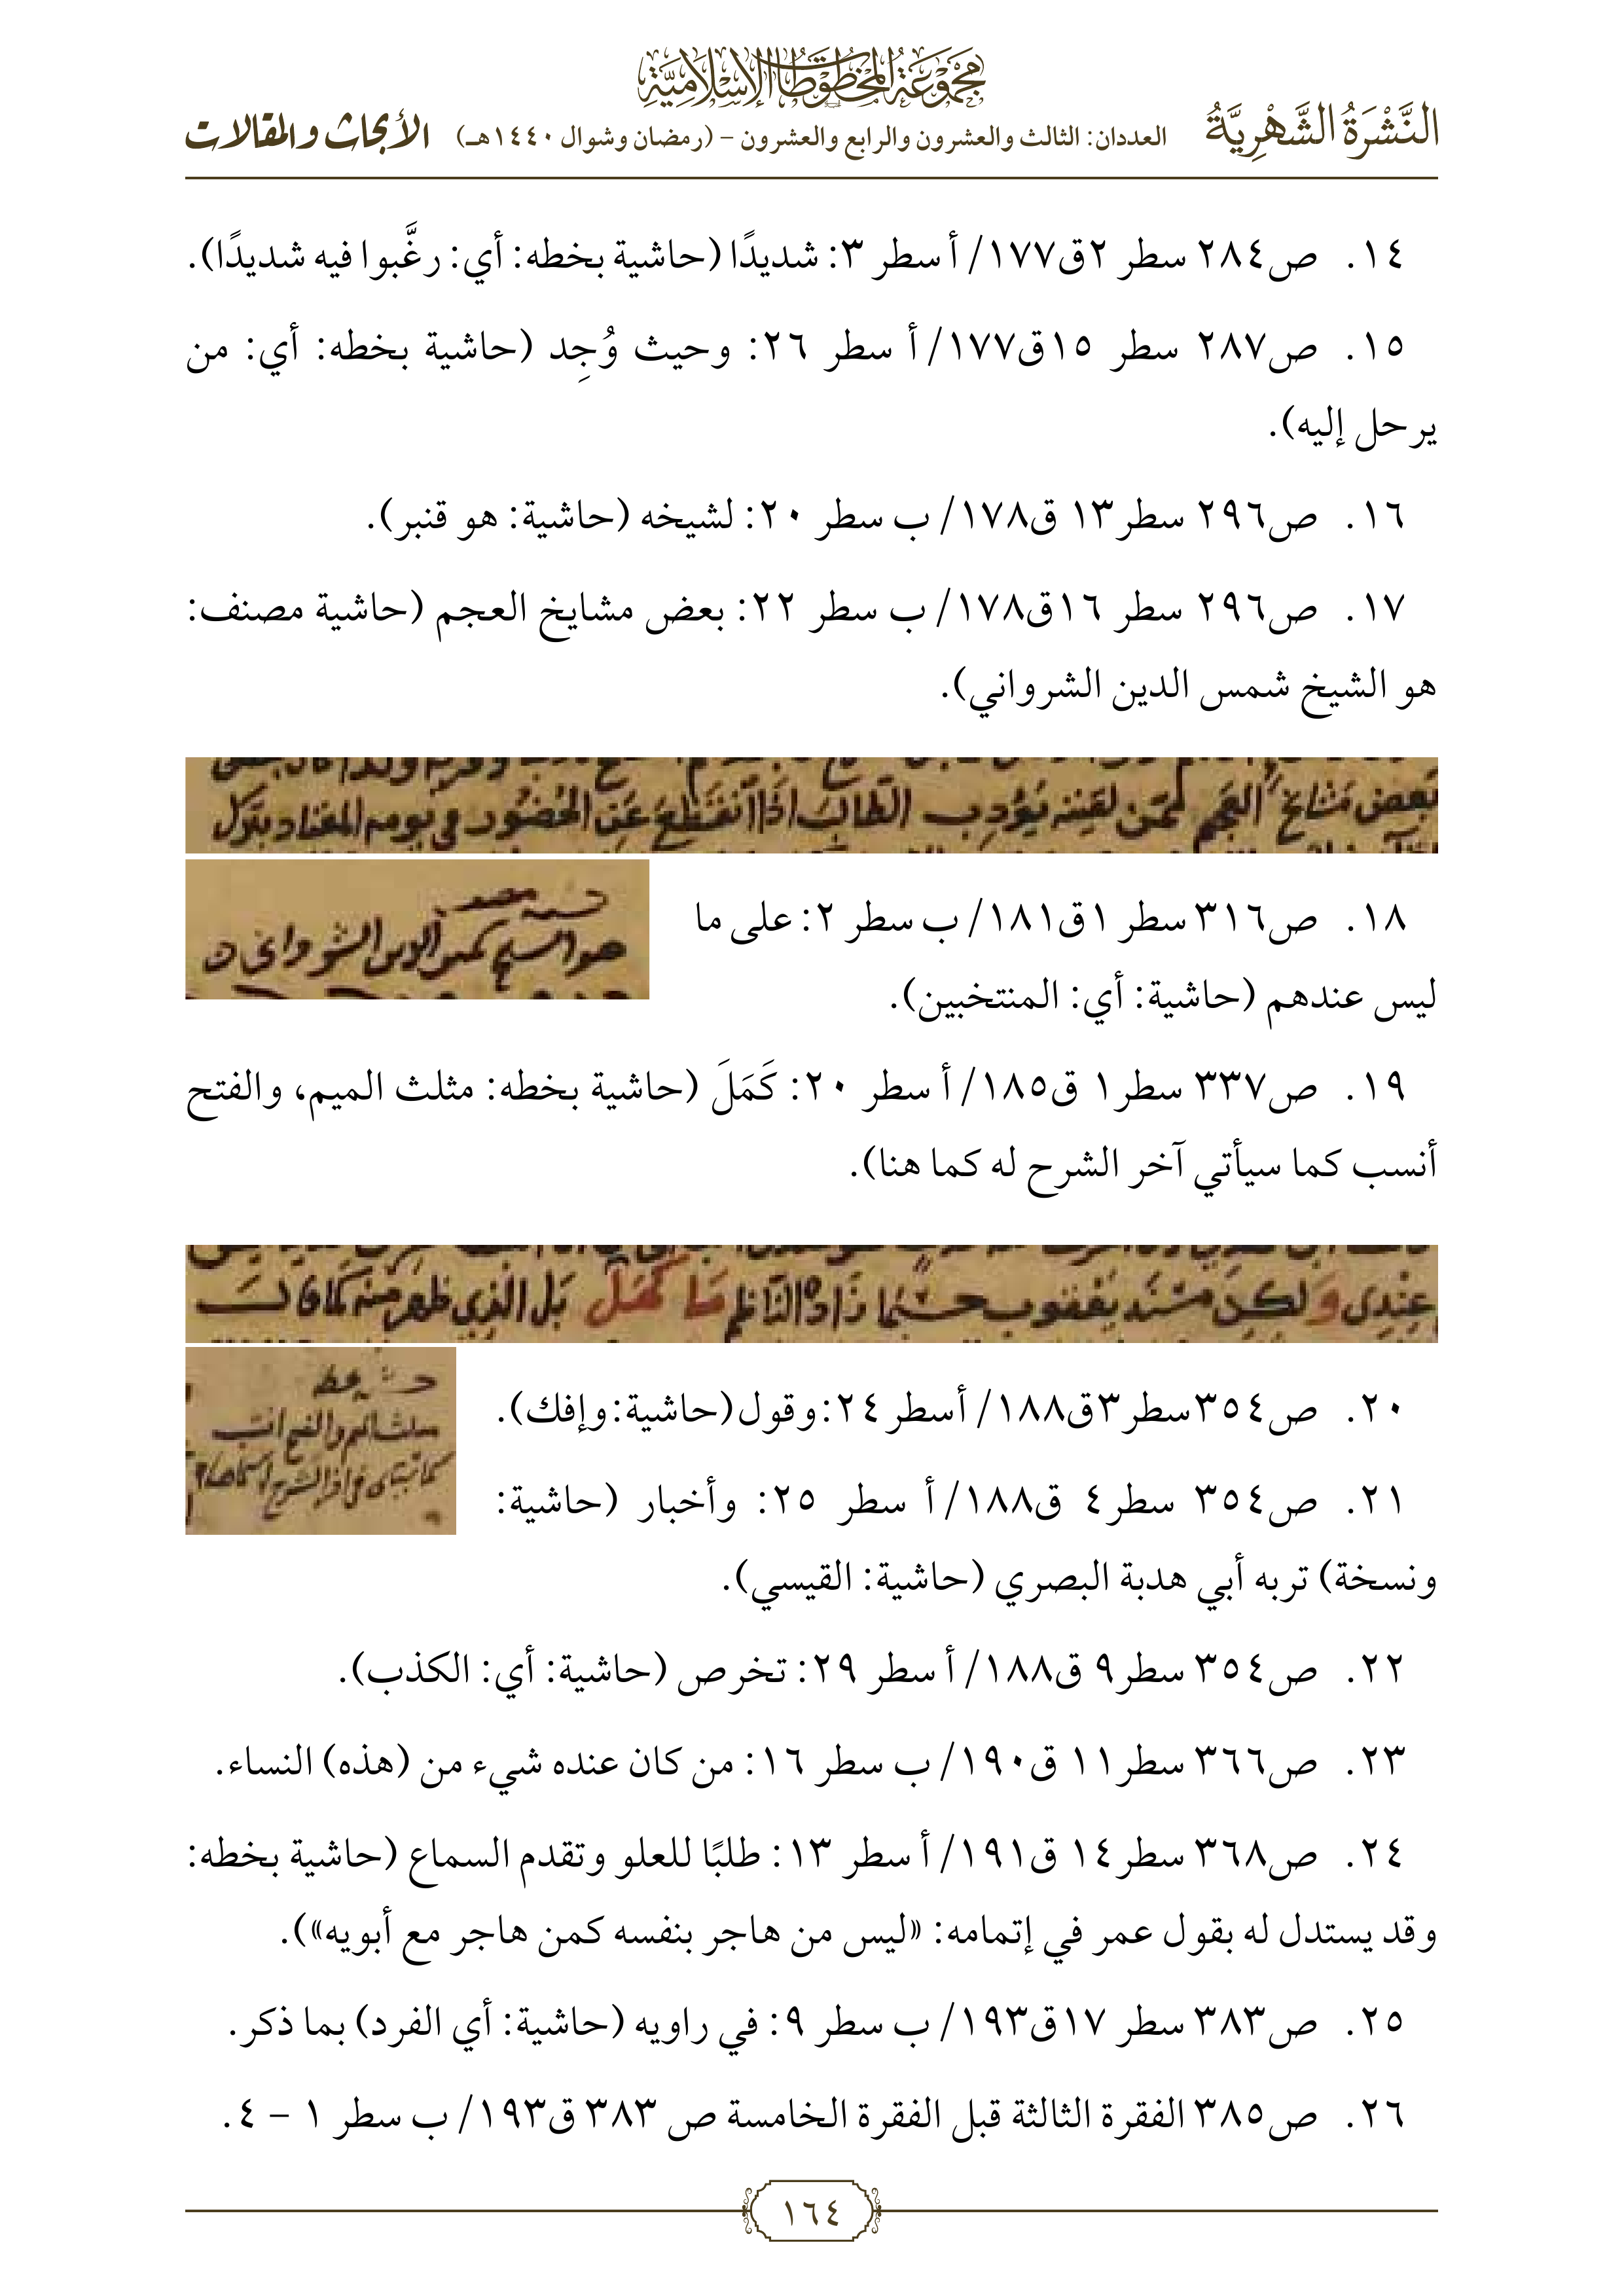 مجموعة المخطوطات الإسلامية
النَّشْرَةُ الشَّهْرِيَّةُ العددان: الثالث والعشرون والرابع والعشرون – (رمضان وشوال ١٤٤٠هـ) الأبحاث والمقالات
١٤. ص٢٨٤ سطر ٢ق١٧٧/ أ سطر ٣: شديدًا (حاشية بخطه: أي: رغَّبوا فيه شديدًا).
١٥. ص٢٨٧ سطر ١٥ق١٧٧/ أ سطر ٢٦: وحيث وُجِد (حاشية بخطه: أي: من
يرحل إليه).
١٦. ص٢٩٦ سطر١٣ ق١٧٨/ ب سطر ٢٠: لشيخه (حاشية: هو قنبر).
١٧. ص٢٩٦ سطر ١٦ق١٧٨/ ب سطر ٢٢: بعض مشايخ العجم (حاشية مصنف:
هو الشيخ شمس الدين الشرواني).
بعض مشايخ العجم ممن لقيته يؤدب الطالب اذا انقطع عن الحضور في يومه المعتاد بتوكل
هو الشيخ شمس الدين الشرواني
١٨. ص٣١٦ سطر ١ق١٨١/ ب سطر ٢: على ما
ليس عندهم (حاشية: أي: المنتخبين).
١٩. ص٣٣٧ سطر١ ق١٨٥/ أ سطر ٢٠: كَمَلَ (حاشية بخطه: مثلث الميم، والفتح
أنسب كما سيأتي آخر الشرح له كما هنا).
عندي ولكن مسند يعقوب حسبما زاده الناظم ما كمل بل الذي ظهر منه كما قال
مثلث الميم والفتح انسب
٢٠. ص٣٥٤سطر٣ق١٨٨/ أسطر ٢٤:وقول(حاشية:وإفك).
٢١. ص٣٥٤ سطر٤ ق١٨٨/ أ سطر ٢٥: وأخبار (حاشية:
ونسخة) تربه أبي هدبة البصري (حاشية: القيسي).
٢٢. ص٣٥٤ سطر٩ ق١٨٨/ أ سطر ٢٩: تخرص (حاشية: أي: الكذب).
٢٣. ص٣٦٦ سطر١١ ق١٩٠/ ب سطر ١٦: من كان عنده شيء من (هذه) النساء.
٢٤. ص٣٦٨ سطر١٤ ق١٩١/ أ سطر ١٣: طلبًا للعلو وتقدم السماع (حاشية بخطه:
وقد يستدل له بقول عمر في إتمامه: «ليس من هاجر بنفسه كمن هاجر مع أبويه»).
٢٥. ص٣٨٣ سطر ١٧ق١٩٣/ ب سطر ٩: في راويه (حاشية: أي الفرد) بما ذكر.
٢٦. ص٣٨٥ الفقرة الثالثة قبل الفقرة الخامسة ص ٣٨٣ ق١٩٣/ ب سطر ١ – ٤.
١٦٤